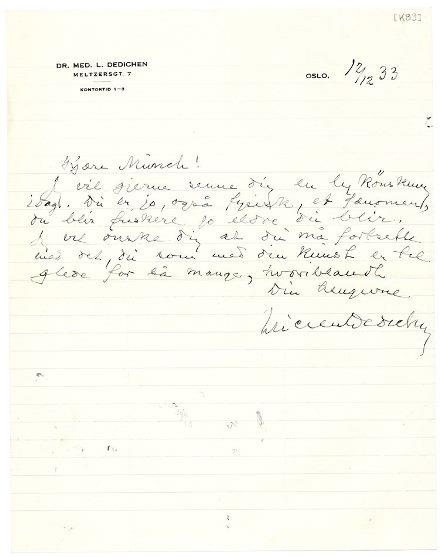 [K83]
DR. MED. L. DEDICHEN
MELTZERSGT. 7
KONTORTID 1-3
OSLO. 12/12 33
Kjære Munch!
Jeg vil gjerne senne dig en lyk ønskning
idag. Du er jo, også fysisk, et fænomen,
du blir friskere jo eldre du blir.
Jeg vil ønske dig at du må fortsette
med det, du som med din Kunst er til
glede for så mange, hvoriblandt
Din hengivne
Lucien Dedichen